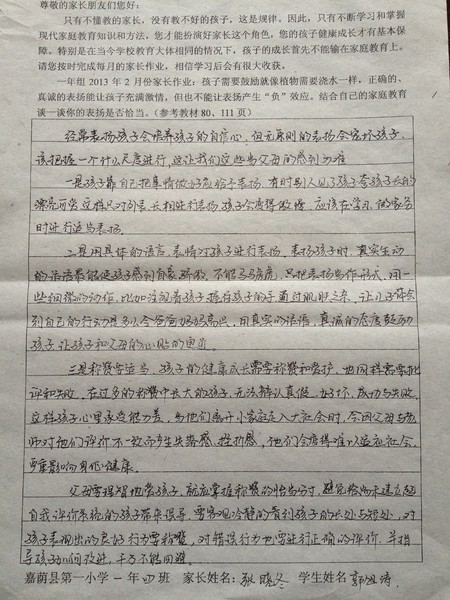 尊敬的家长朋友们您好:
只有不懂教的家长,没有教不好的孩子,这是规律。因此,只有不断学习和掌握
现代家庭教育知识和方法,您才能扮演好家长这个角色,您的孩子健康成长才有基本保
障。特别是在当今学校教育大体相同的情况下,孩子的成长首先不能输在家庭教育上。
请您按时完成每月的家长作业,相信学习后会有很大收获。
一年组 2013 年 2 月份家长作业:孩子需要鼓励就像植物需要浇水一样,正确的、
真诚的表扬能让孩子充满激情,但也不能让表扬产生“负”效应。结合自己的家庭教育
谈一谈你的表扬是否恰当。(参考教材 80、111 页)
经常表扬孩子会培养孩子的自信心,但无原则的表扬会宠坏孩子,
该把握一个什么尺度进行,这让我们这些当父母的感到为难
一是孩子靠自己把事情做好应给予表扬,有时别人见了孩子夸孩子长的
漂亮可爱,这样只对外表长相进行表扬,孩子会变得傲慢,应该在学习,做家务
时进行适当表扬。
二是用具体的语言、表情对孩子进行表扬。表扬孩子时,真实生动
的话语最能使孩子感到自豪骄傲,不能马马虎虎,只把表扬当作形式,用一
些细微的动作,比如注视着孩子,握住孩子的手,通过肌肤之亲,让儿子体会
到自己的行动是多么令爸爸妈妈高兴,用真实的话语,真诚的态度鼓动
孩子,让孩子和父母的心贴的更近
三是称赞要适当,孩子的健康成长需要称赞和爱护,也同样需要批
评和失败,在过多的称赞中长大的孩子,无法辨认真假、好坏、成功与失败,
这样孩子心里承受能力差,当他们离开小家庭走入大社会时,会因父母与老
师对他们评价不一致而产生失落感、挫折感,他们会变得难以适应社会,
严重影响身心健康。
父母要理智地赏孩子,就应掌握称赞的恰当分寸,避免给尚未建立起
自我评价系统的孩子带来误导,要客观冷静的看到孩子的长处与短处,对
孩子表现出的良好行为要称赞,对错误行为也要进行正确的评价,并指
导孩子如何改进,千万不能回避。
嘉荫县第一小学一年 四 班 家长姓名 张晓冬 学生姓名 郭